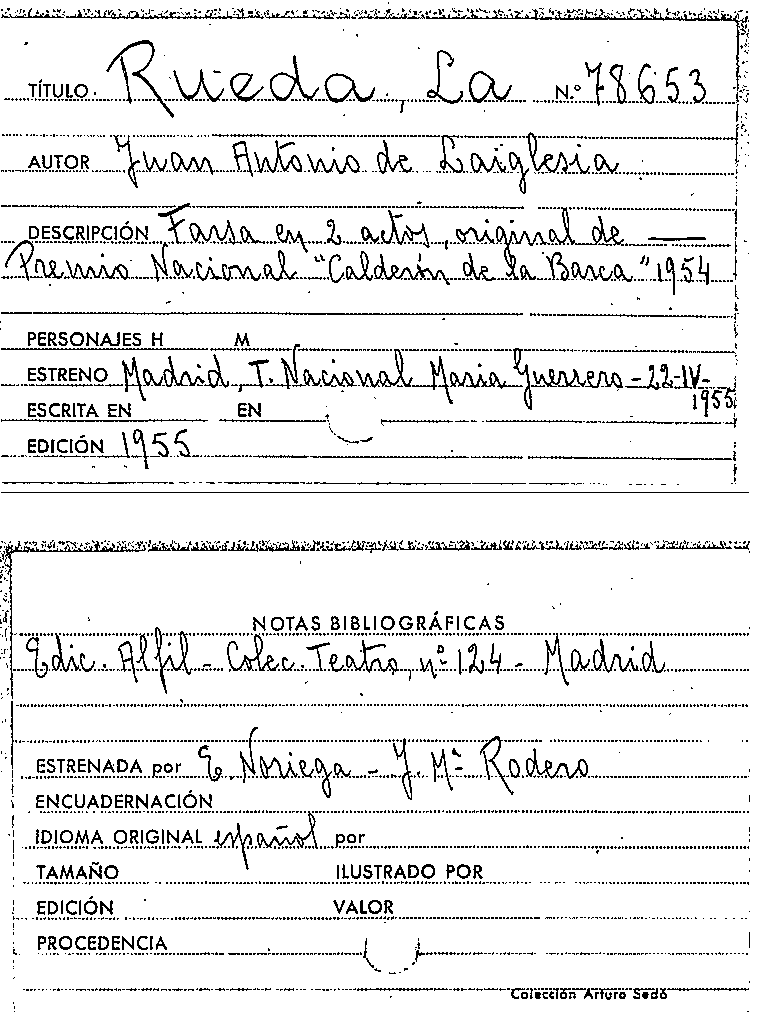 TÍTULO. Rueda, La N.º 78653
AUTOR Juan Antonio de Laiglesia
DESCRIPCIÓN Farsa en 2 actos, original de —
Premio Nacional "Calderón de la Barca" 1954
PERSONAJES H M
ESTRENO Madrid, T. Nacional Maria Guerrero - 22-IV-
1955
ESCRITA EN EN
EDICIÓN 1955
NOTAS BIBLIOGRÁFICAS
Edic. Alfil - Colec. Teatro, nº 124 - Madrid
ESTRENADA por E. Noriega - J. Mª Rodero
ENCUADERNACIÓN
IDIOMA ORIGINAL español por
TAMAÑO ILUSTRADO POR
EDICIÓN VALOR
PROCEDENCIA
Colección Arturo Sedó